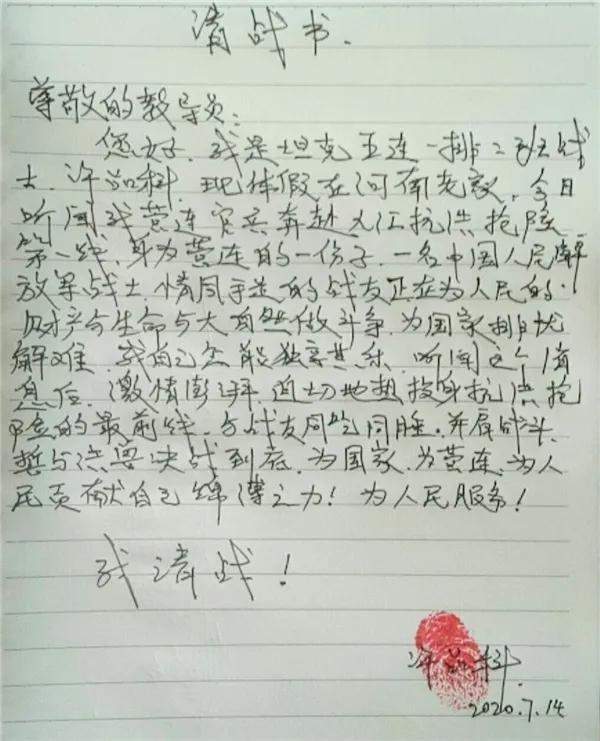 请战书.
尊敬的教导员:
您好.我是坦克五连一排二班战
士.许 科.现休假在河南老家.今日
听闻我营连官兵奔赴九江抗洪抢险
第一线.身为营连的一份子.一名中国人民解
放军战士.情同手足的战友正在为人民的
财产与生命与大自然做斗争.为国家排忧
解难.我自己怎能独享其乐.听闻这个消
息后.激情澎湃.迫切地想投身抗洪抢
险的最前线.与战友同吃同睡.并肩战斗.
誓与洪要决战到底.为国家.为营连.为人
民贡献自己绵薄之力!为人民服务!
我请战!
许 科.
2020.7.14